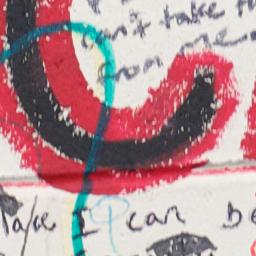 can't take t
from me
place I can be